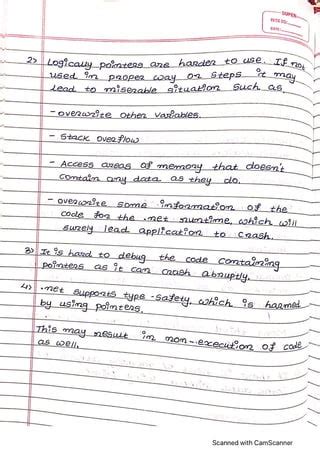 SUPER
DATE:
2) Logically pointers are harder to use. If not
used in proper way or steps it may
lead to miserable situation such as,
- overwrite other variables.
- Stack overflow
- Access areas of memory that doesn't
contain any data as they do.
- overwrite some information of the
code for the .net runtime, which will
surely lead application to crash.
3) It is hard to debug the code containing
pointers as it can crash abruptly.
4) .net supports type-safety, which is harmed
by using pointers.
This may result in non-execution of code
as well.
Scanned with CamScanner